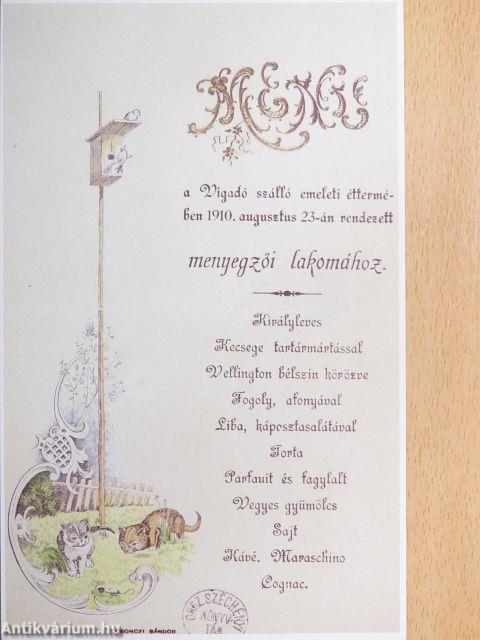 MENU
a Vigadó szálló emeleti éttermé-
ben 1910. augusztus 23-án rendezett
menyegzői lakomához.
Királyleves
Kecsege tartármártással
Vellington bélszin körözve
Fogoly, afonyával
Liba, káposztasalátával
Torta
Parfauit és fagylalt
Vegyes gyümölcs
Sajt
Kávé. Maraschino
Cognac.
ORSZ. SZÉCHÉNYI
KÖNYV
TÁR
SÁNDOR
Antikvárium.hu